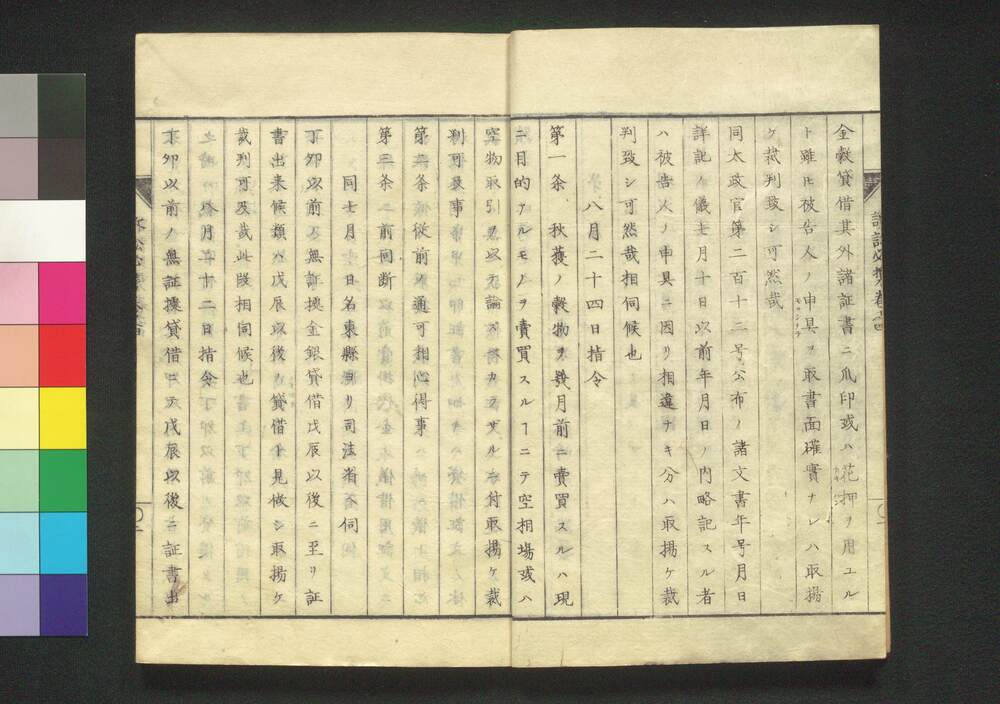 金穀貸借其外諸証書ニ爪印或ハ花押ヲ用ユル
ト雖𪜈被告人ノ申具ヲ取書面確實ナレハ取揚
ケ裁判致シ可然哉
同太政官第二百十二号公布ノ諸文書年号月日
詳記ノ儀七月十日以前年月日ノ内略記スル者
ハ被告人ノ申具ニ因リ相違ナキ分ハ取揚ケ裁
判致シ可然哉相伺候也
八月二十四日指令
第一条　秋穫ノ穀物ヲ幾月前ニ賣買スルハ現
ニ目的アルモノヲ賣買スルヿニテ空相場或ハ
空物取引ヲ以テ論スヘカラザルニ付取揚ケ裁
判可及事
第二条従前ノ通可相心得事
第三条　前同断
同七月　日名東縣ヨリ司法省ヘ伺
丁卯以前ノ無証據金銀貸借戊辰以後ニ至リ証
書出来候類ハ戊辰以後ノ貸借ト見做シ取揚ケ
裁判可及哉此段相伺候也
月二十二日指令
丁卯以前ノ無証據貸借ニテ戊辰以後ニ証書出